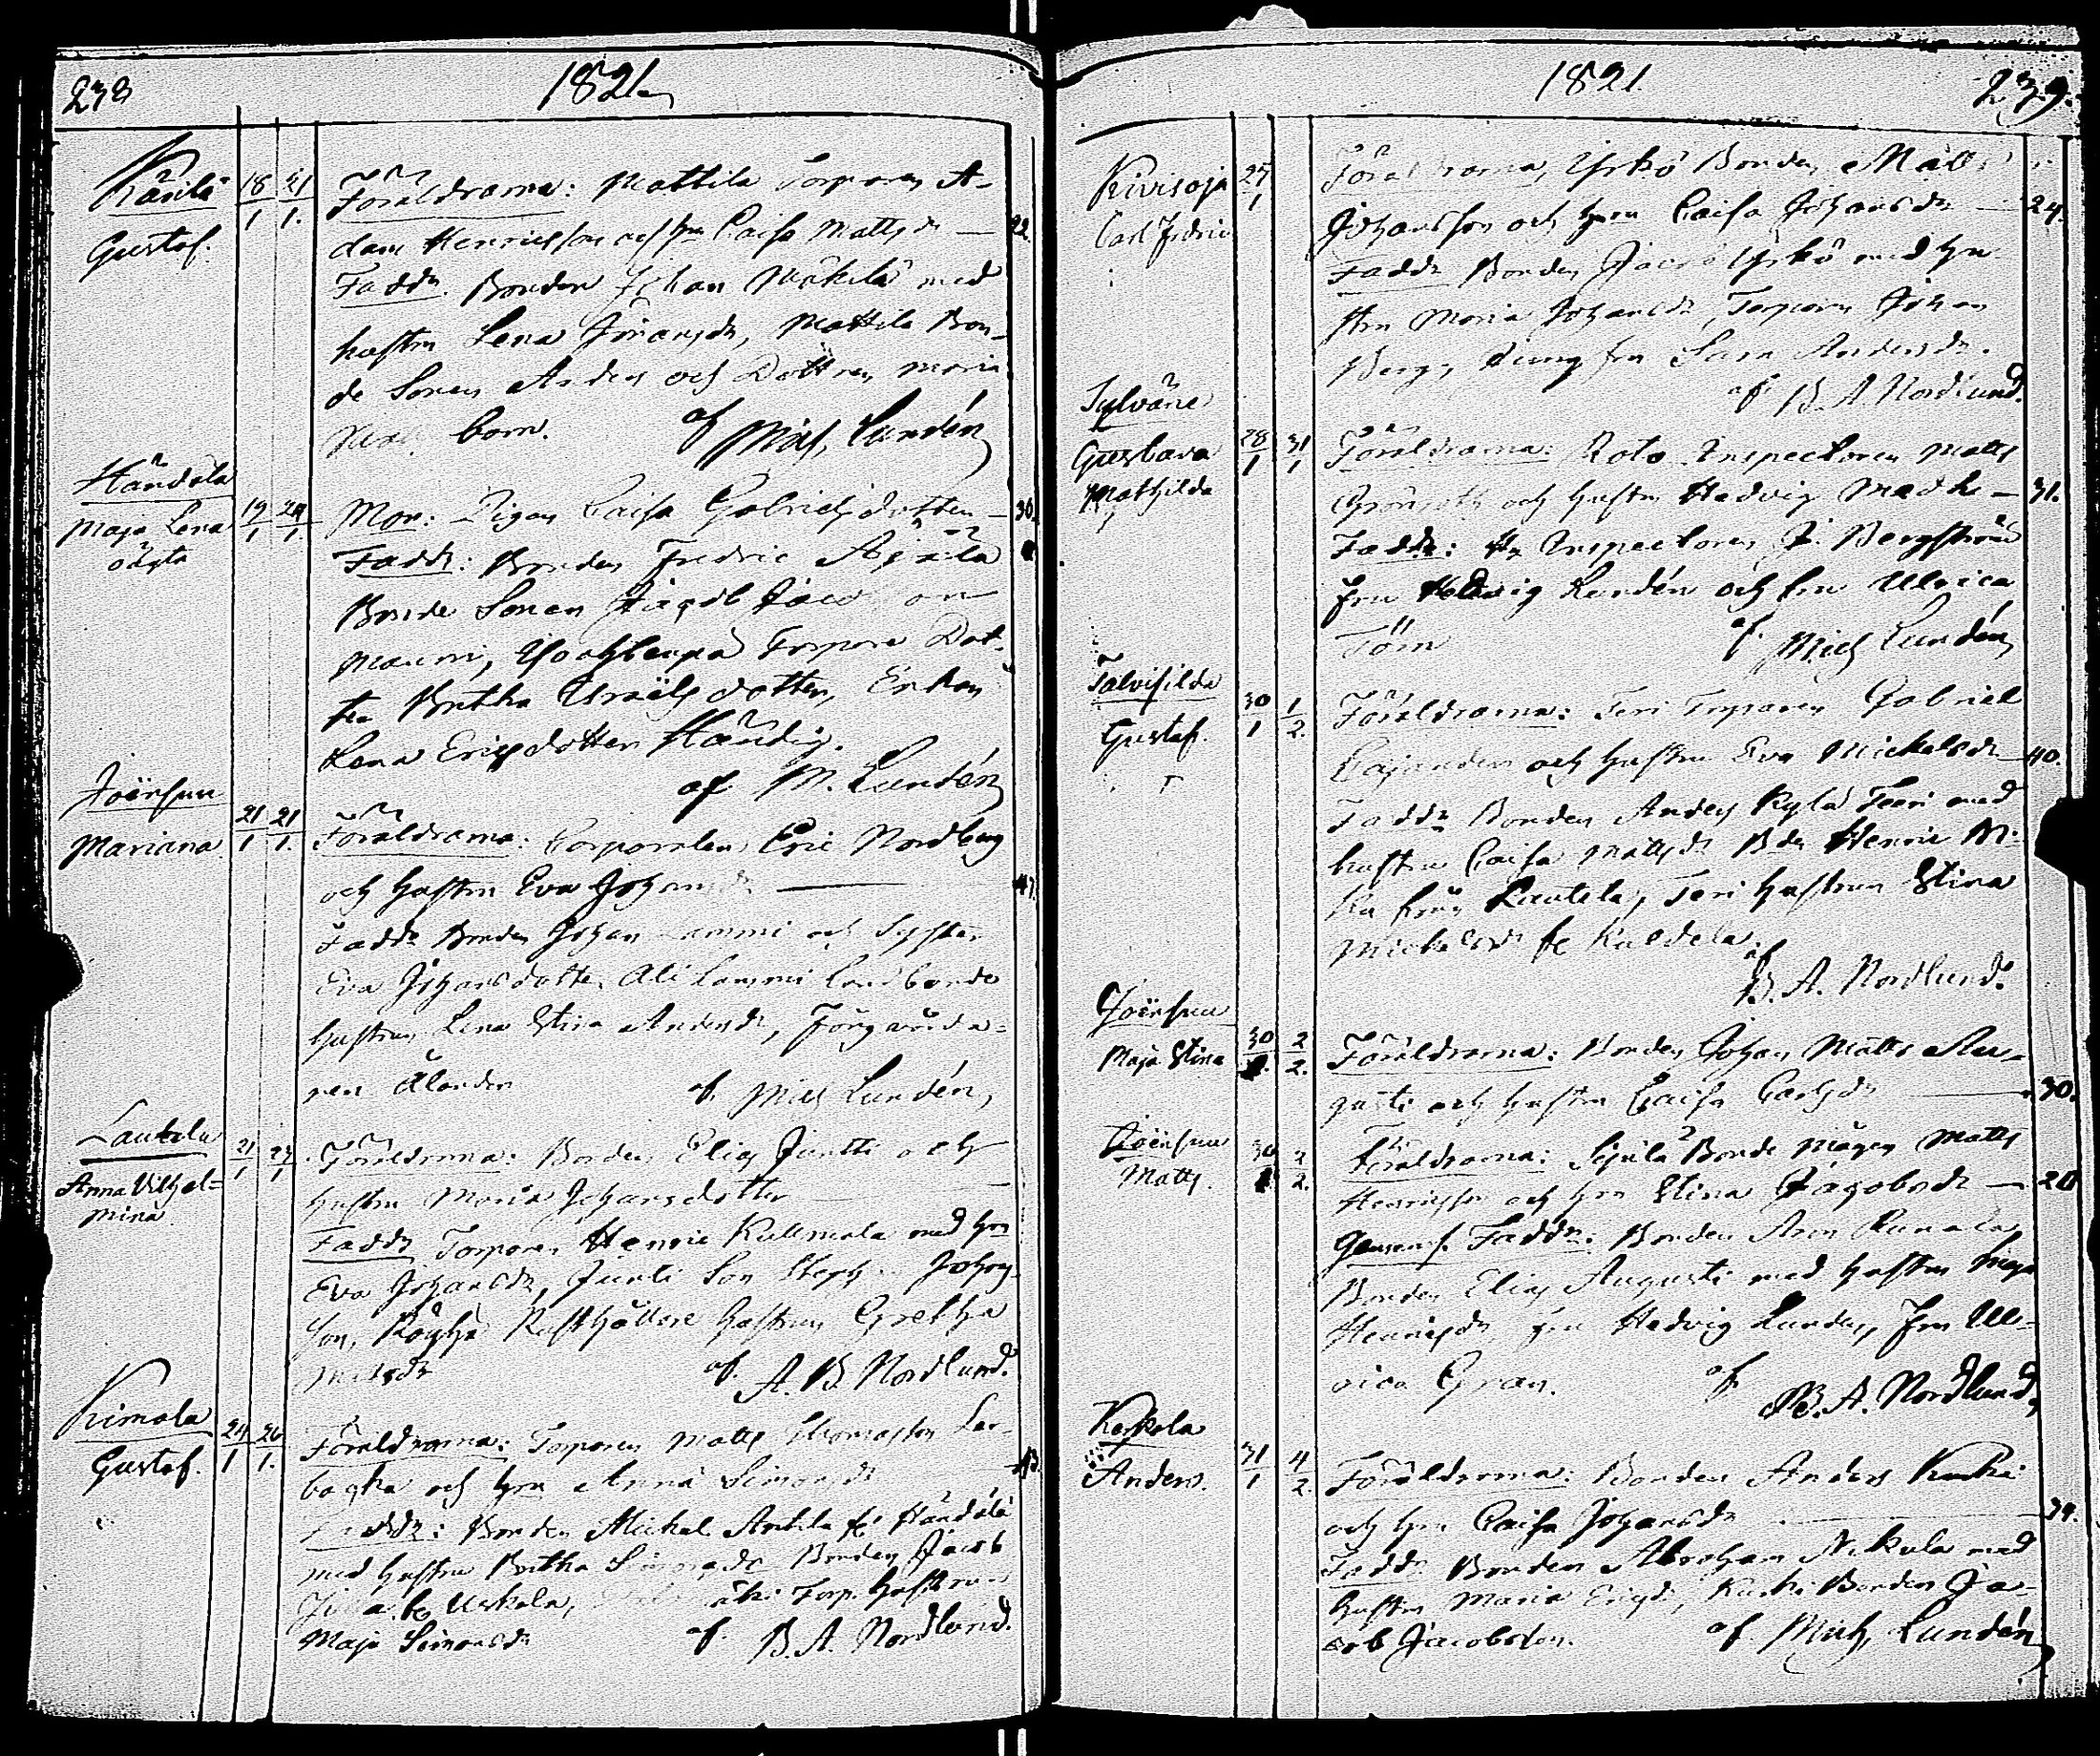 238
1821
Känilä 18/1 21/1. Föräldrarna: Mattila Torparen A-
Gustaf. dam Henricsson och hn Caisa Mattsdr — 22.
Faddr. Bonden Johan Mäkilä med
hustru Lena Göransdr, Mattila Bon-
de Sonen Anders och Dottren Maria
barn. af Mich. Lundén
Händälä
Maja Lena 19/1 24/1. Mor: Pigan Caisa Gabrielsdotter — 30.
oägta Faddr: Bonden Fredric Äijälä
Bonde Sonen Jacob
Mauri, Torpare Dot-
ter Brita Israelsdotter, Enkan
Lena Ericsdotter Händig.
af M. Lundén
Joensuu
Mariana 21/1 21/1. Föräldrarna: Corporalen Eric Nordberg
och hustru Eva Johansdr — 47.
Faddr Bonden Johan Lammi och Syster
Eva Johansdotter Ali Lammi Landbonde
hustrun Lena Stina Andersdr, Färgaregesälle-
Ålander af Mich Lundén
Lautela 21/1 27/1 Föräldrarna: Bonden Elias Juntti och
Anna Vilhel= hustru Maria Johansdotter
mina. Faddr Torparen Henric Kullmala med hn
Eva Johansdr, Juntti Son Steph Johans-
son, Röyhä Rusthållare hustrun Gretha
Matsdr af. A. B. Nordlund.
Kimala 24/1 26/1. Föräldrarna: Torparen Matts Thomasson Lar-
Gustaf. backa och hn Anna Simonsdr — 43.
Faddr: Bonden Michel Anttila fr Händälä
med hustru Britha Simonsdr Bonden Jacob
fr Uskela, Torp. hustrun
Maja Simonsdr af. B. A. Nordlund.
1821.
239.
Kivisoja 27/1 Föräldrarna, Yrkö Bonden Matts
Carl Fredric Johansson och hn Caisa Johansdr — 24.
Faddr Bonden Jacob Yrkö med hu-
stru Maria Johansdr, Torparen Johan
Berg, Jungfru Sara Andersdr.
af B. A Nordlund.
Sylväne
Gustava 28/1 31/1 Föräldrarna: Roto Inspectoren Matts
Mathilda Grönroth och hustru Hedvig Madle — 31.
Faddr: Hr Inspectoren J. Bergström
fru Hedvig Lundén och fru Ulrica
Törn af. Mich Lundén
Talvisilda 30/1 1/2. Föräldrarna: Teri Torparen Gabriel
Gustaf. Cajander och hustru Eva Mickelsdr — 40.
Faddr Bonden Anders Kylä Teeri med
hustru Caisa Mattsdr Bdn Henric Mi-
från Lautela, Teri hustrun Stina
Michelsdr fr Kaldela
af B. A. Nordlund.
Joensuu
Maja Stina 30/1. 2/2. Föräldrarna: Bonden Johan Matts Au-
gusti och hustru Caisa Carlsdr — 30.
Joensuu 30/1 2/2. Föräldrarna: Sejälä Bonde Mågen Matts
Matts. Henricsson och hn Stina Jacobsdr — 20
Gemens. Faddr: Bonden Aron Runala
Bonden Elias Augusti med hustru Inga
Henricsdr fru Hedvig Lundén, Fru Ull-
rica Gran. af B. A. Nordlund
Keskola
Anders. 31/1 4/2. Föräldrarna: Bonden Anders Kuuki
och hn Caisa Johansdr — 34.
Faddr Bonden Abraham Nikula med
hustru Maria Ericsdr, Bonden Ja-
cob Jacobsson. af. Mich, Lundén